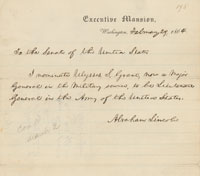 Executive Mansion,
Washington, February 29, 1864
To the Senate of the United States.
I nominate Ulysses S. Grant, now a Major
General in the Military service, to be Lieutenant
General in the Army of the United States.
Abraham Lincoln